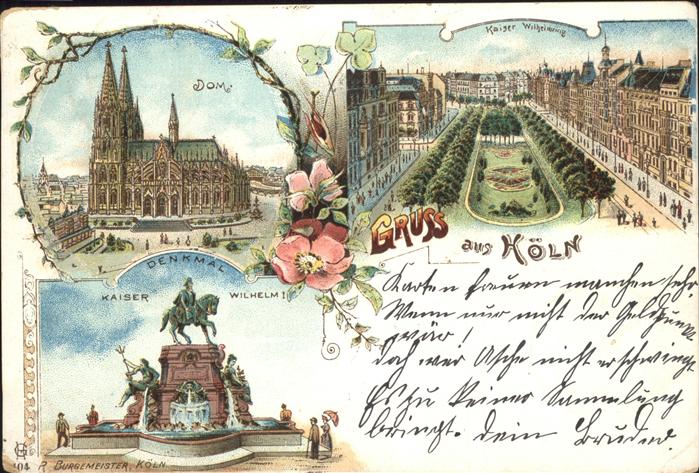 DOM.
Kaiser Wilhelmring
GRUSS
aus KÖLN
DENKMAL
KAISER WILHELM I
Karten freuen manchen sehr
Wenn nur nicht der Geldpunkt
wär!
doch wer Asche nicht erschwingt
Es zu keiner Sammlung
bringt. Dein Bruder.
'04 P. BURGEMEISTER, KÖLN